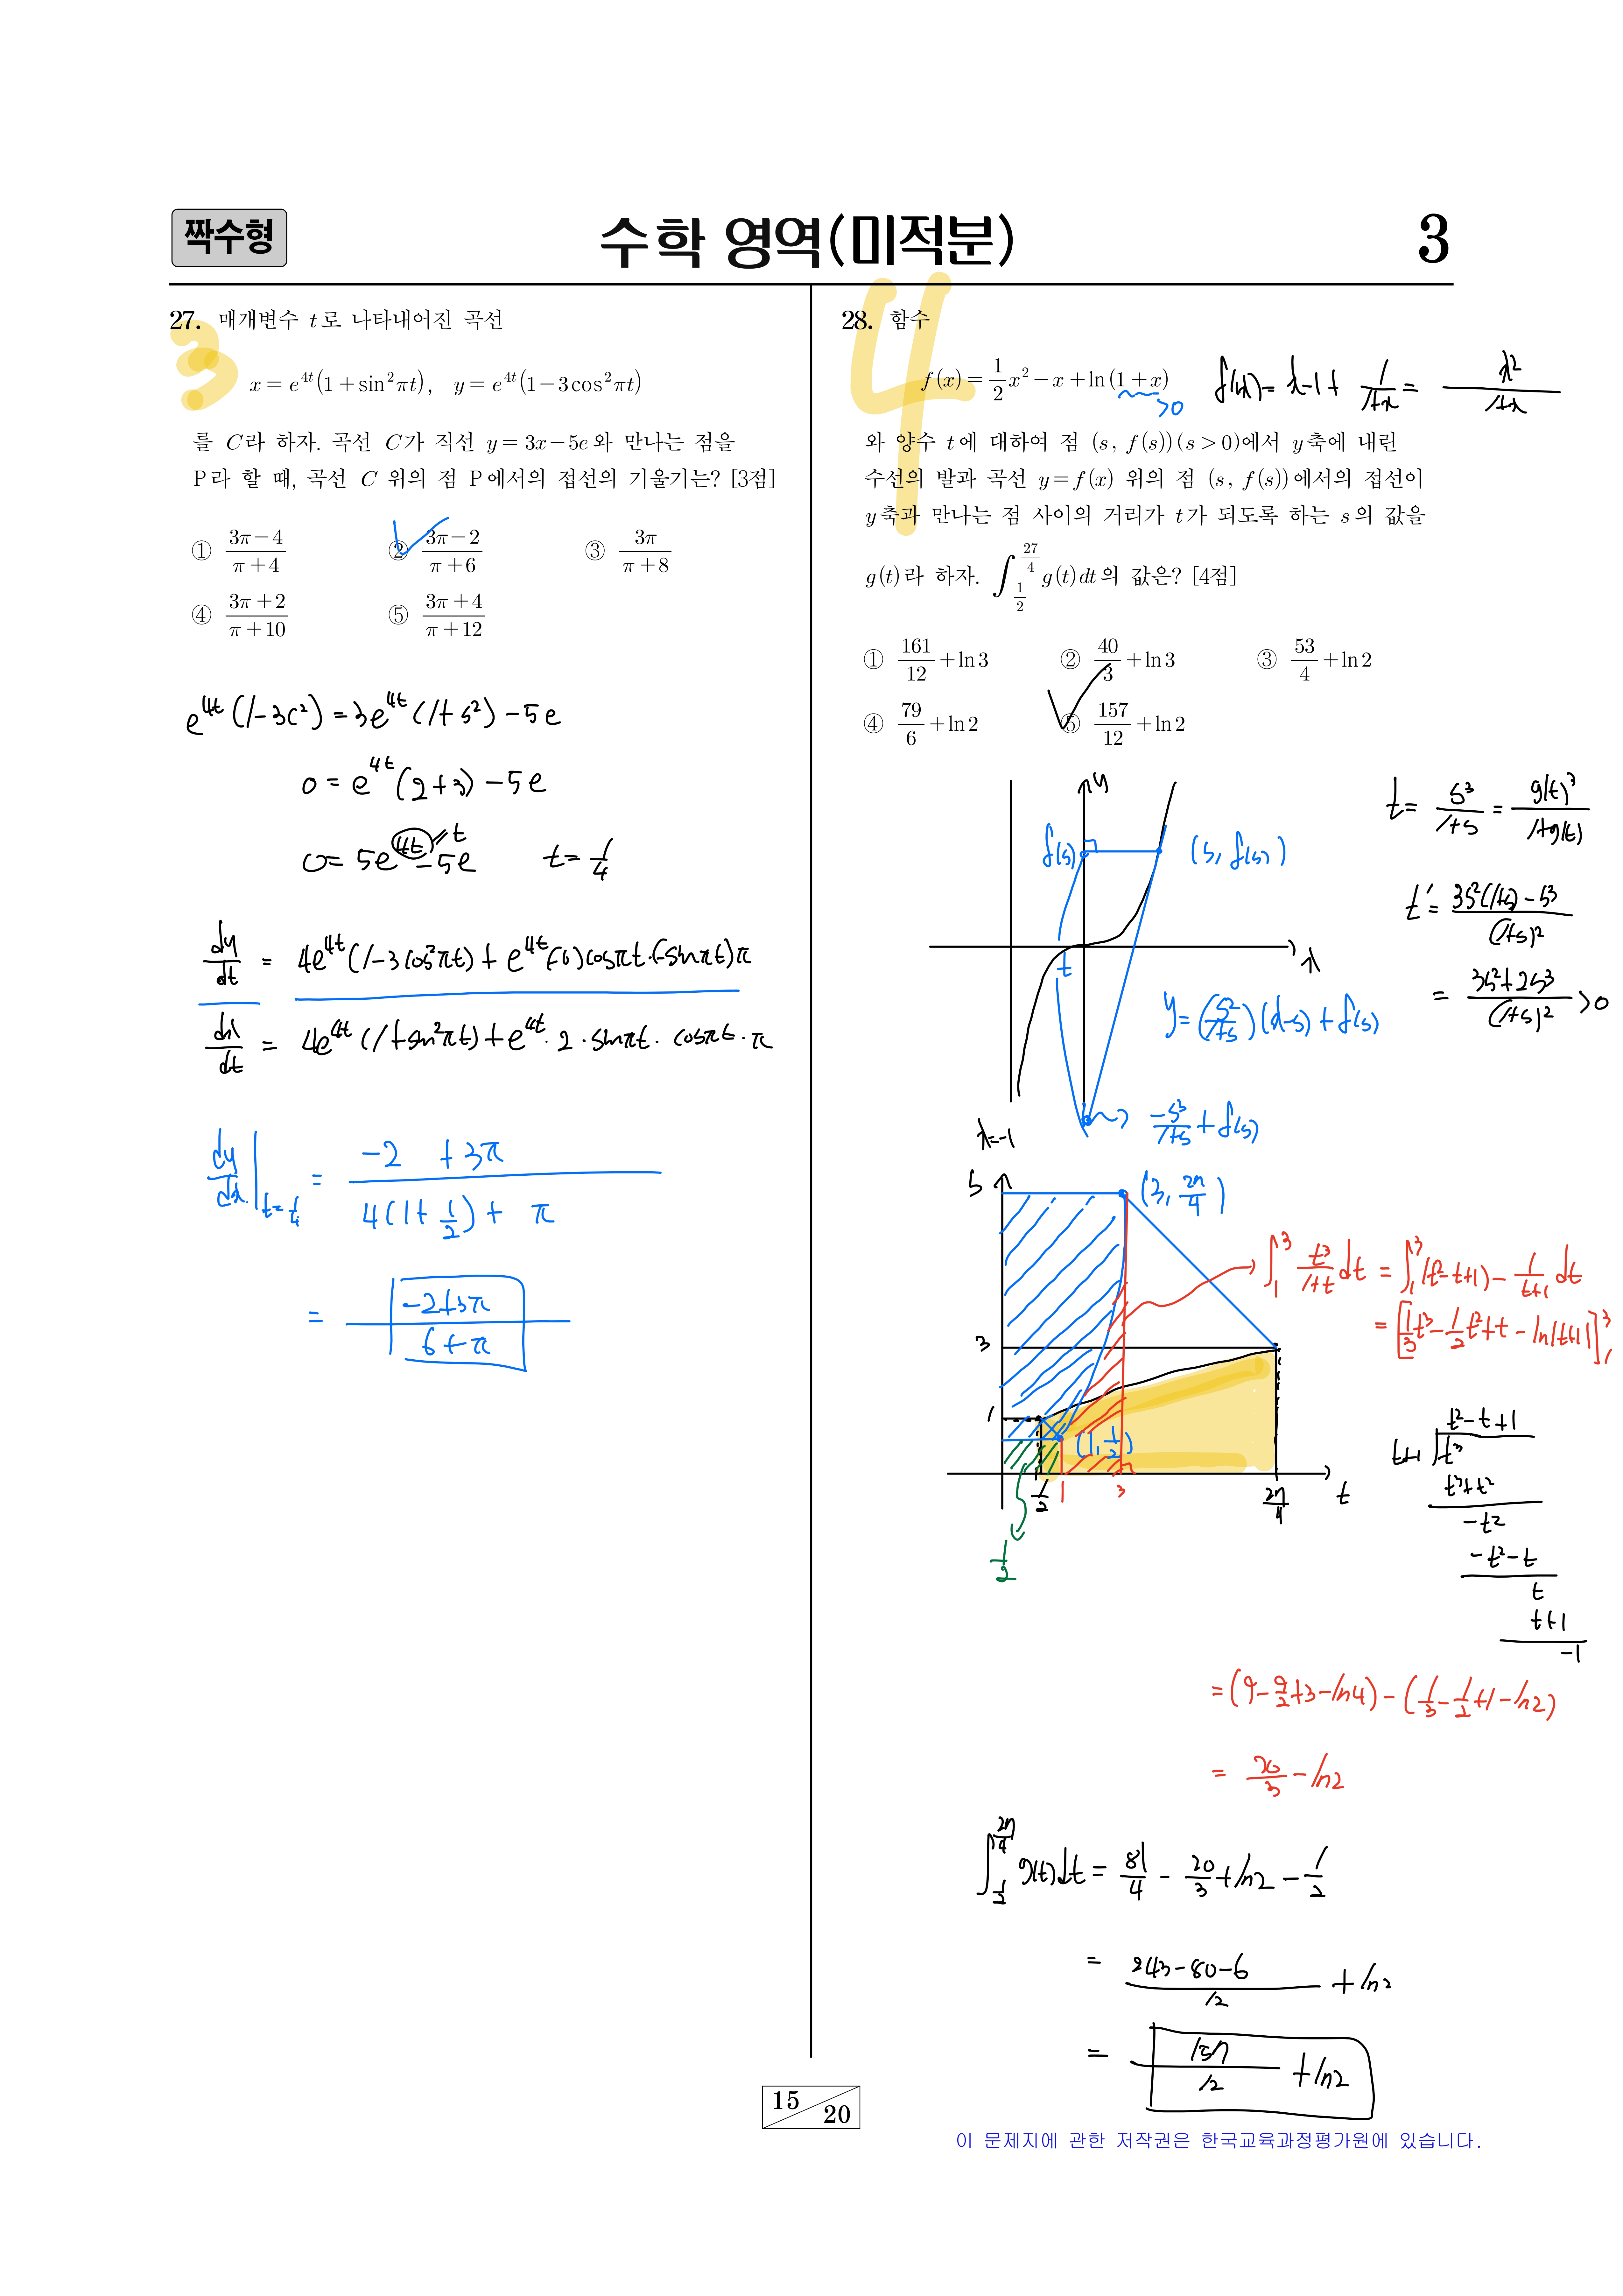 짝수형
수학 영역(미적분)
3
27. 매개변수 t로 나타내어진 곡선
x = e^{4t}(1+sin²πt), y = e^{4t}(1−3cos²πt)
를 C라 하자. 곡선 C가 직선 y=3x−5e와 만나는 점을
P라 할 때, 곡선 C 위의 점 P에서의 접선의 기울기는? [3점]
① (3π−4)/(π+4) ② (3π−2)/(π+6) ③ 3π/(π+8)
④ (3π+2)/(π+10) ⑤ (3π+4)/(π+12)
3
e^{4t}(1−3c²) = 3e^{4t}(1+s²) −5e
0 = e^{4t}(2+3) −5e
0 = 5e^{4t} −5e t = 1/4
dy/dt = 4e^{4t}(1−3cos²πt) + e^{4t}(−6)cosπt·(−sinπt)π
dx/dt = 4e^{4t}(1+sin²πt) + e^{4t}·2·sinπt·cosπt·π
dy/dx|_{t=1/4} = (−2 +3π)/(4(1+1/2)+ π)
= (−2+3π)/(6+π)
28. 함수
f(x) = 1/2 x² − x + ln(1+x)
와 양수 t에 대하여 점 (s, f(s))(s>0)에서 y축에 내린
수선의 발과 곡선 y=f(x) 위의 점 (s, f(s))에서의 접선이
y축과 만나는 점 사이의 거리가 t가 되도록 하는 s의 값을
g(t)라 하자. ∫_{1/2}^{27/4} g(t)dt의 값은? [4점]
① 161/12 + ln3 ② 40/3 + ln3 ③ 53/4 + ln2
④ 79/6 + ln2 ⑤ 157/12 + ln2
4
>0
f'(x) = x−1+ 1/(1+x) = x²/(1+x)
y
f(s)
(s, f(s))
t
x
y = (s²/(1+s))(x−s) + f(s)
−s³/(1+s) + f(s)
x=−1
t = s³/(1+s) = g(t)³/(1+g(t))
t' = (3s²(1+s) − s³)/(1+s)²
= (3s²+2s³)/(1+s)² >0
s
(3, 27/4)
3
1
(1, 1/2)
1/2
1
3
27/4
t
1/2
∫_1^3 t³/(1+t) dt = ∫_1^3 (t²−t+1) − 1/(t+1) dt
= [1/3 t³ − 1/2 t² + t − ln|t+1|]_1^3
t²−t+1
t+1 t³
t³+t²
−t²
−t²−t
t
t+1
−1
= (9 − 9/2 + 3 − ln4) − (1/3 − 1/2 + 1 − ln2)
= 20/3 − ln2
∫_{1/2}^{27/4} g(t)dt = 81/4 − 20/3 + ln2 − 1/2
= (243−80−6)/12 + ln2
= 157/12 + ln2
15
20
이 문제지에 관한 저작권은 한국교육과정평가원에 있습니다.